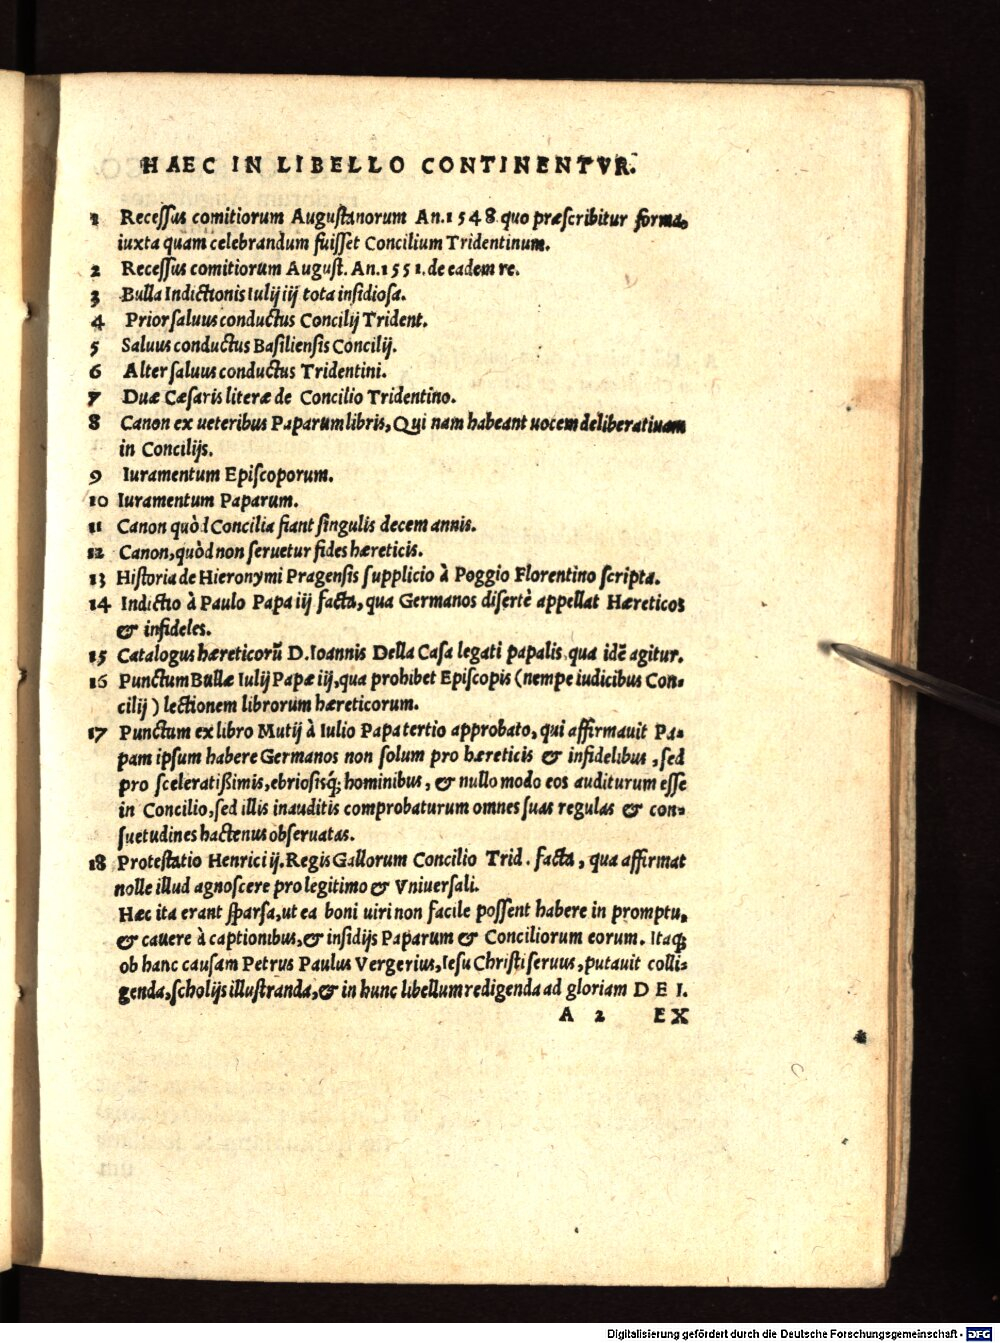 HAEC IN LIBELLO CONTINENTVR.
1 Recessus comitiorum Augustanorum An. 1548. quo præscribitur forma,
iuxta quam celebrandum fuisset Concilium Tridentinum.
2 Recessus comitiorum August. An. 1551. de eadem re.
3 Bulla Indictionis Iulij iij tota insidiosa.
4 Prior saluus conductus Concilij Trident.
5 Saluus conductus Basiliensis Concilij.
6 Alter saluus conductus Tridentini.
7 Duæ Cæsaris literæ de Concilio Tridentino.
8 Canon ex ueteribus Paparum libris, Qui nam habeant uocem deliberatiuam
in Concilijs.
9 Iuramentum Episcoporum.
10 Iuramentum Paparum.
11 Canon quòd Concilia fiant singulis decem annis.
12 Canon, quòd non seruetur fides hæreticis.
13 Historia de Hieronymi Pragensis supplicio à Poggio Florentino scripta.
14 Indictio à Paulo Papa iij facta, qua Germanos disertè appellat Hæreticos
& infideles.
15 Catalogus hæreticorũ D. Ioannis Della Casa legati papalis qua idẽ agitur.
16 Punctum Bullæ Iulij Papæ iij, qua prohibet Episcopis (nempe iudicibus Con-
cilij) lectionem librorum hæreticorum.
17 Punctum ex libro Mutij à Iulio Papa tertio approbato, qui affirmauit Pa-
pam ipsum habere Germanos non solum pro hæreticis & infidelibus, sed
pro sceleratißimis, ebriosisq́; hominibus, & nullo modo eos auditurum esse
in Concilio, sed illis inauditis comprobaturum omnes suas regulas & con-
suetudines hactenus obseruatas.
18 Protestatio Henrici ij. Regis Gallorum Concilio Trid. facta, qua affirmat
nolle illud agnoscere pro legitimo & Vniuersali.
Hæc ita erant sparsa, ut ea boni uiri non facile possent habere in promptu,
& cauere à captionibus, & insidijs Paparum & Conciliorum eorum. Itaq;
ob hanc causam Petrus Paulus Vergerius, Iesu Christi seruus, putauit colli-
genda, scholijs illustranda, & in hunc libellum redigenda ad gloriam DEI.
A 2 EX
Digitalisierung gefördert durch die Deutsche Forschungsgemeinschaft - DFG